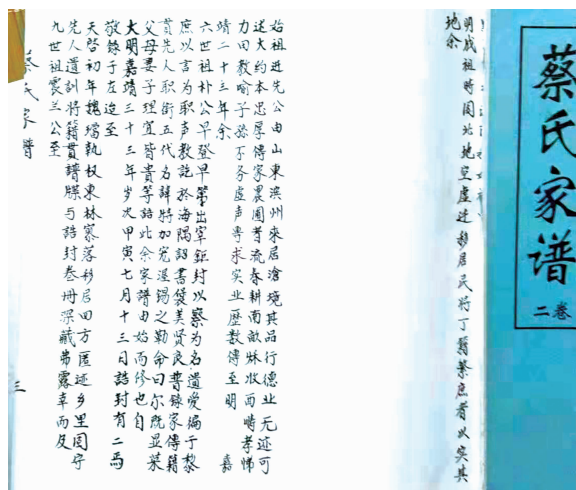 蔡氏家谱
二卷
明成祖時因北地空虚迁移居民将丁翳繁庶者以实其
地余
始祖进先公由山東滨州來居滄境其品行德业无迹可
述大约本忠厚傳家農圃者流春耕南畝牀牧西畴孝悌
力田教喻子孙不务虚声专求实业歷数傳至明 嘉
靖二十三年余
六世祖朴公早登早第出宰鉅封以察为名遺爱編于黎
庶以言为职声教訖於海隅詔書褒美贤良普錄家傳籍
贯先人职銜五代为諱特加宠渥錫之勅命曰尔既显荣
父母妻子理宜皆贵等誥此余家譜由始而修也自
大明嘉靖三十三年岁次甲寅七月十三日誥封有二焉
敬錄于左迨至
天啓初年魏璫執权東林寥落移居四方匿迹乡里固守
先人遺訓将籍贯譜牒与誥封卷册深藏弗露幸而及
九世祖震兰公至
蔡氏家譜
三